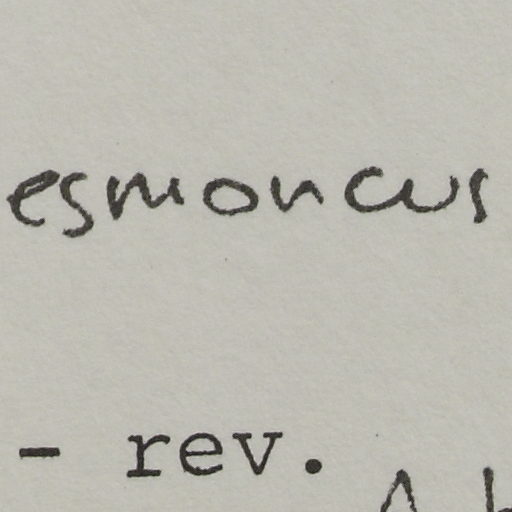 esmoncus
- rev.